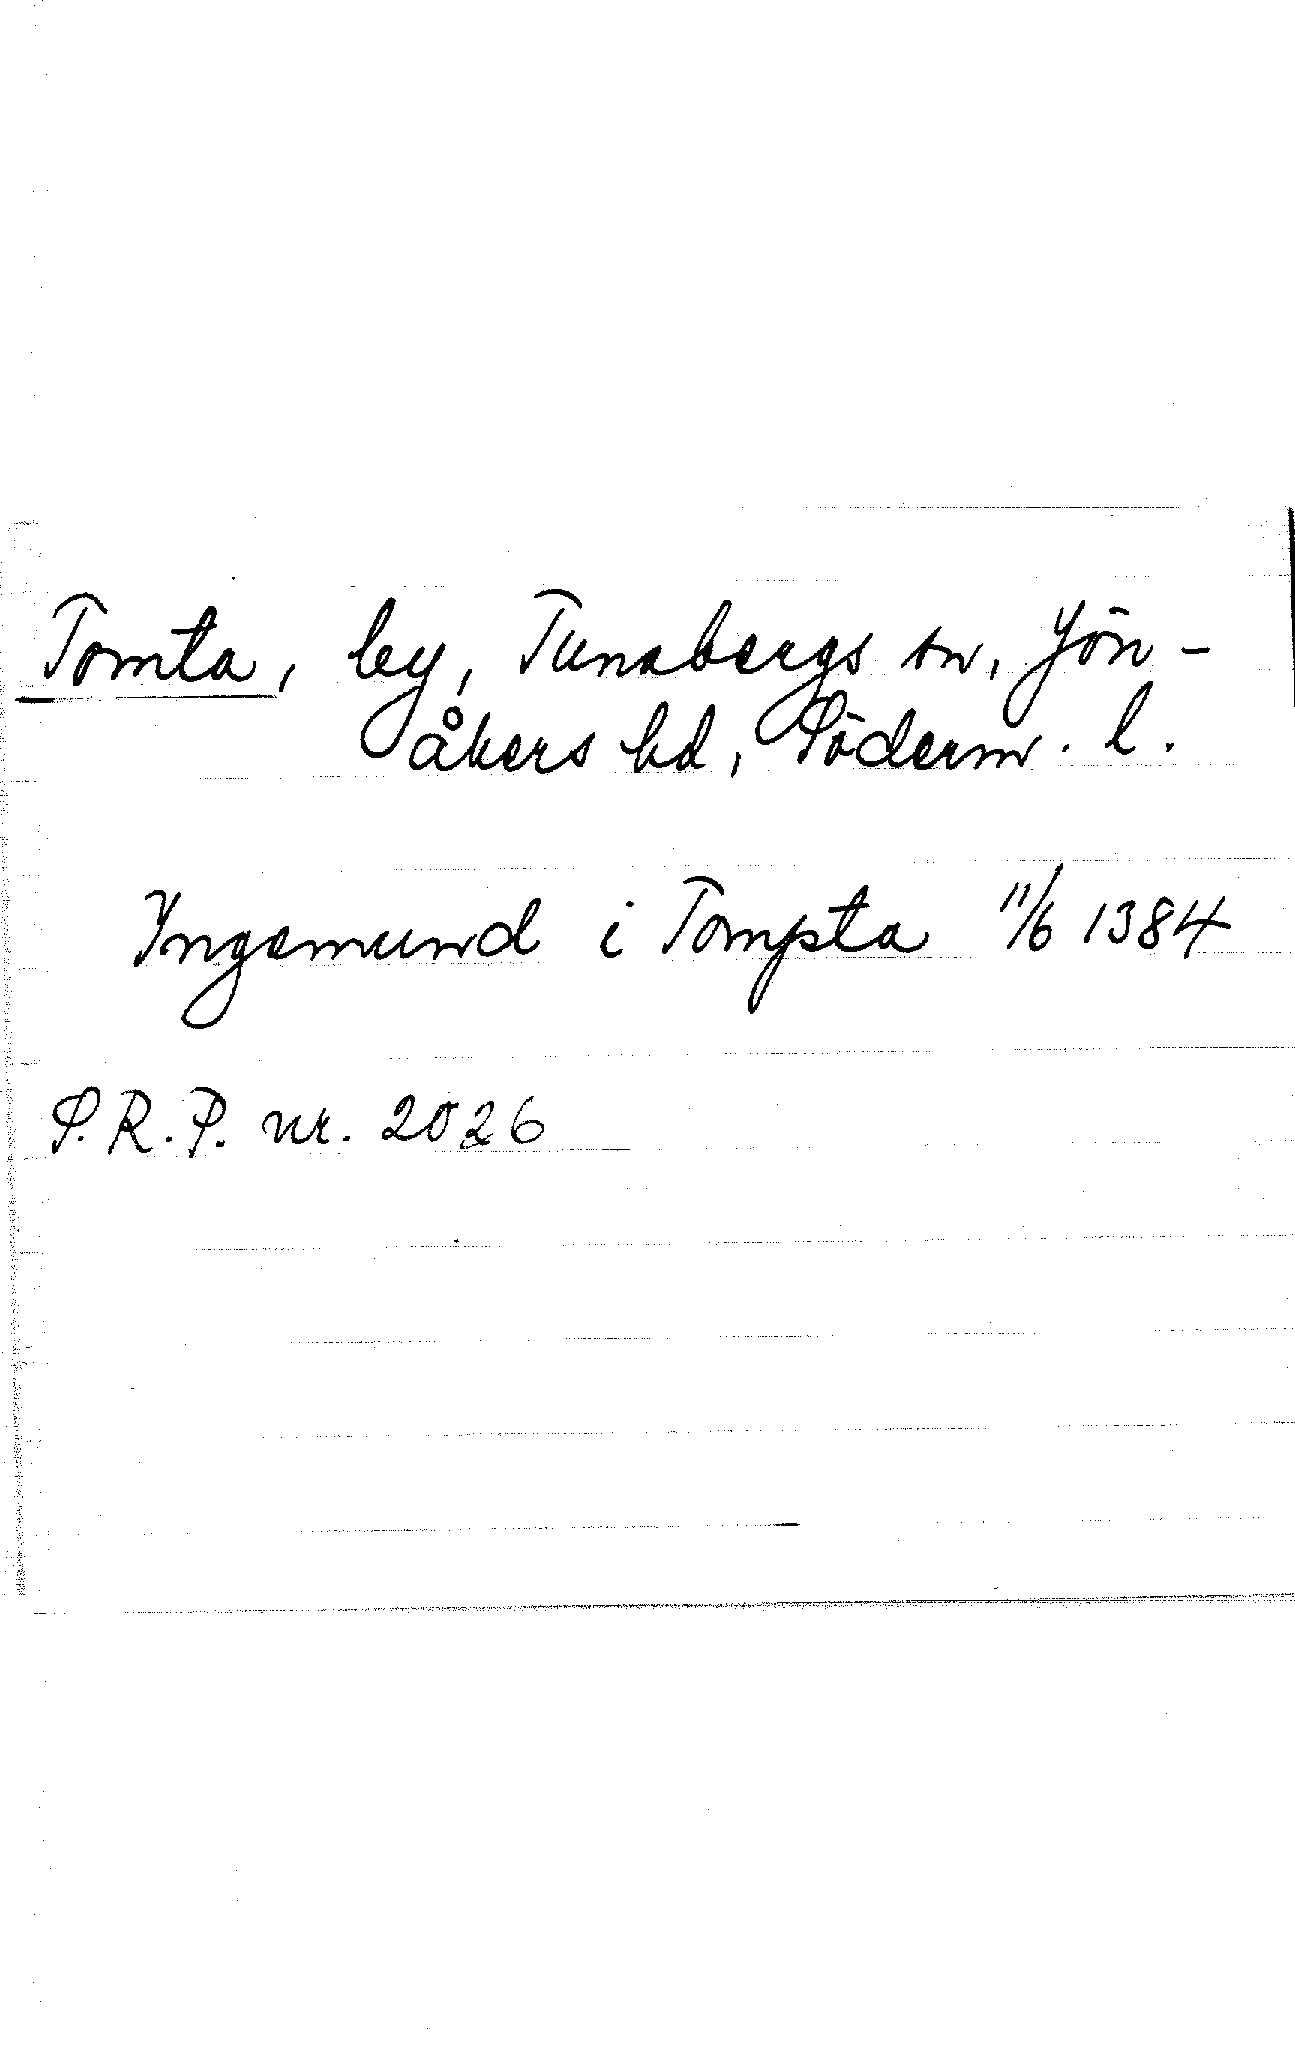 Tomta, by, Tunabergs sn, Jön-
åkers hd, Söderm. l.
Yngemund i Tompta 11/6 1384
S.R.P. nr. 2026